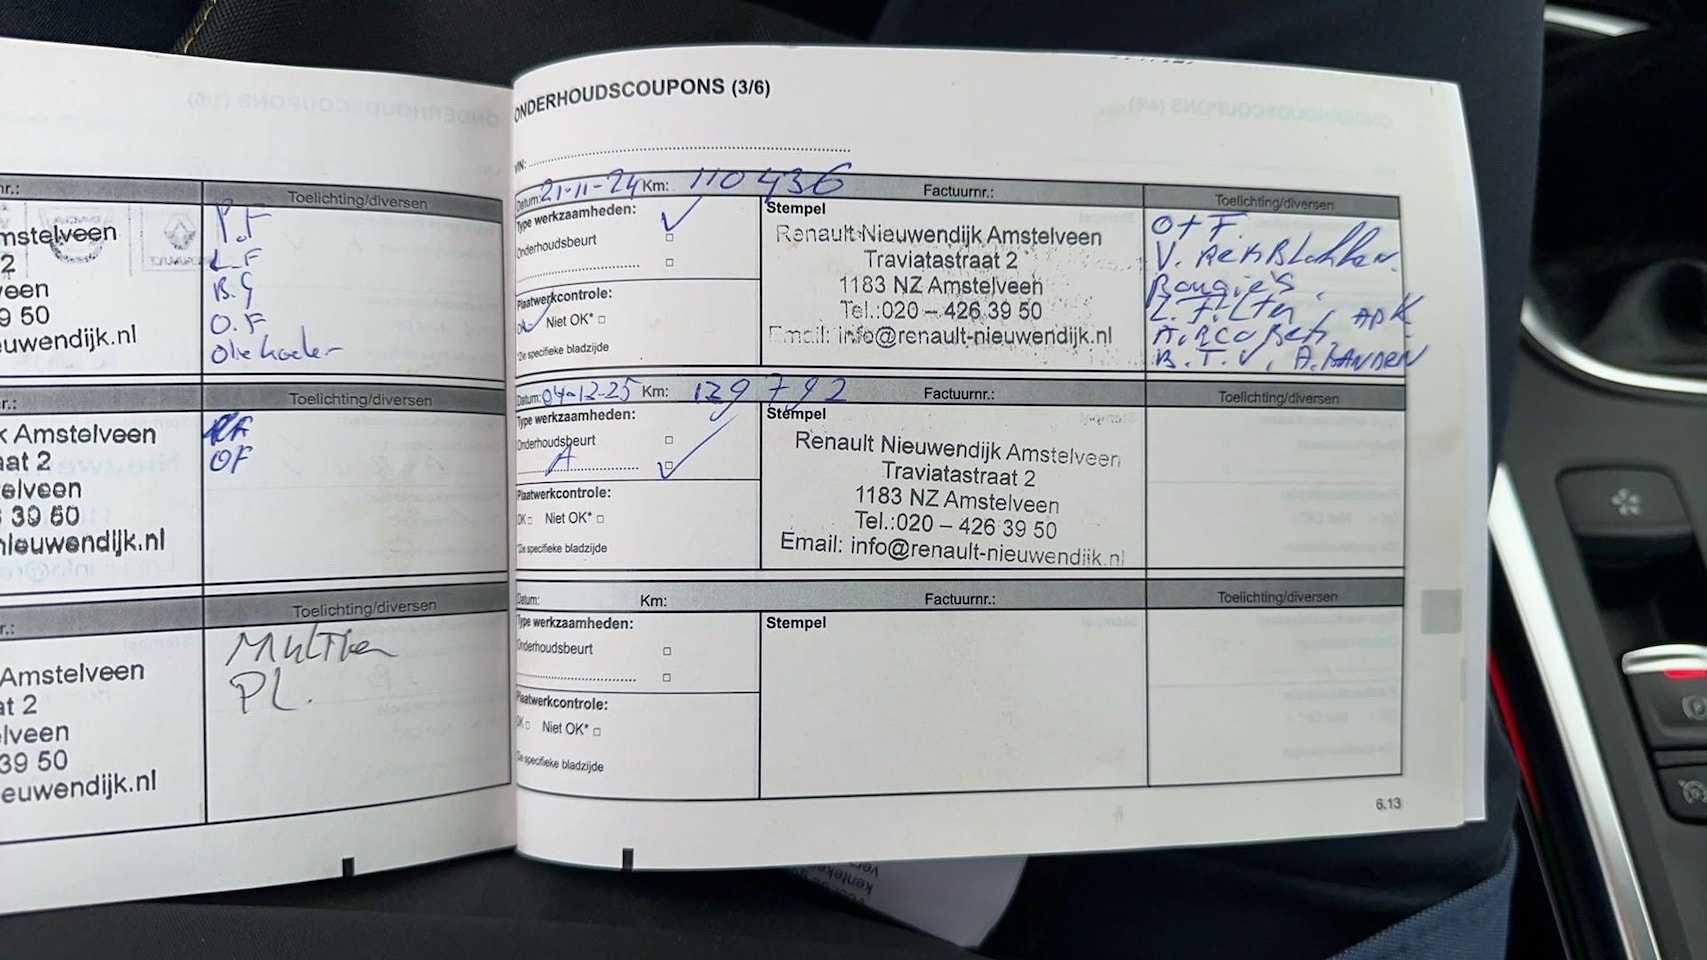 nr.:
Toelichting/diversen
mstelveen
2
veen
9 50
euwendijk.nl
P.F
L.F
B.G
O.F
Olie koeler
nr.:
Toelichting/diversen
k Amstelveen
aat 2
elveen
3 39 50
nieuwendijk.nl
OF
r.:
Toelichting/diversen
Amstelveen
at 2
elveen
39 50
euwendijk.nl
Multker
PL.
ONDERHOUDSCOUPONS (3/6)
VIN:
Datum: 21-11-24 Km: 110 436 Factuurnr.:
Toelichting/diversen
Type werkzaamheden:
Onderhoudsbeurt
Plaatwerkcontrole:
OK Niet OK*
*Zie specifieke bladzijde
Stempel
Renault Nieuwendijk Amstelveen
Traviatastraat 2
1183 NZ Amstelveen
Tel.:020 – 426 39 50
Email: info@renault-nieuwendijk.nl
O+F.
V. Remblokken
Bougie's
L. Filter, APK
Airco Beh
B.T.V, A.BANDEN
Datum: 04-12-25 Km: 129 792 Factuurnr.:
Toelichting/diversen
Type werkzaamheden:
Onderhoudsbeurt
A
Plaatwerkcontrole:
OK Niet OK*
*Zie specifieke bladzijde
Stempel
Renault Nieuwendijk Amstelveen
Traviatastraat 2
1183 NZ Amstelveen
Tel.:020 – 426 39 50
Email: info@renault-nieuwendijk.nl
Datum: Km: Factuurnr.:
Toelichting/diversen
Type werkzaamheden:
Onderhoudsbeurt
Plaatwerkcontrole:
OK Niet OK*
*Zie specifieke bladzijde
Stempel
6.13